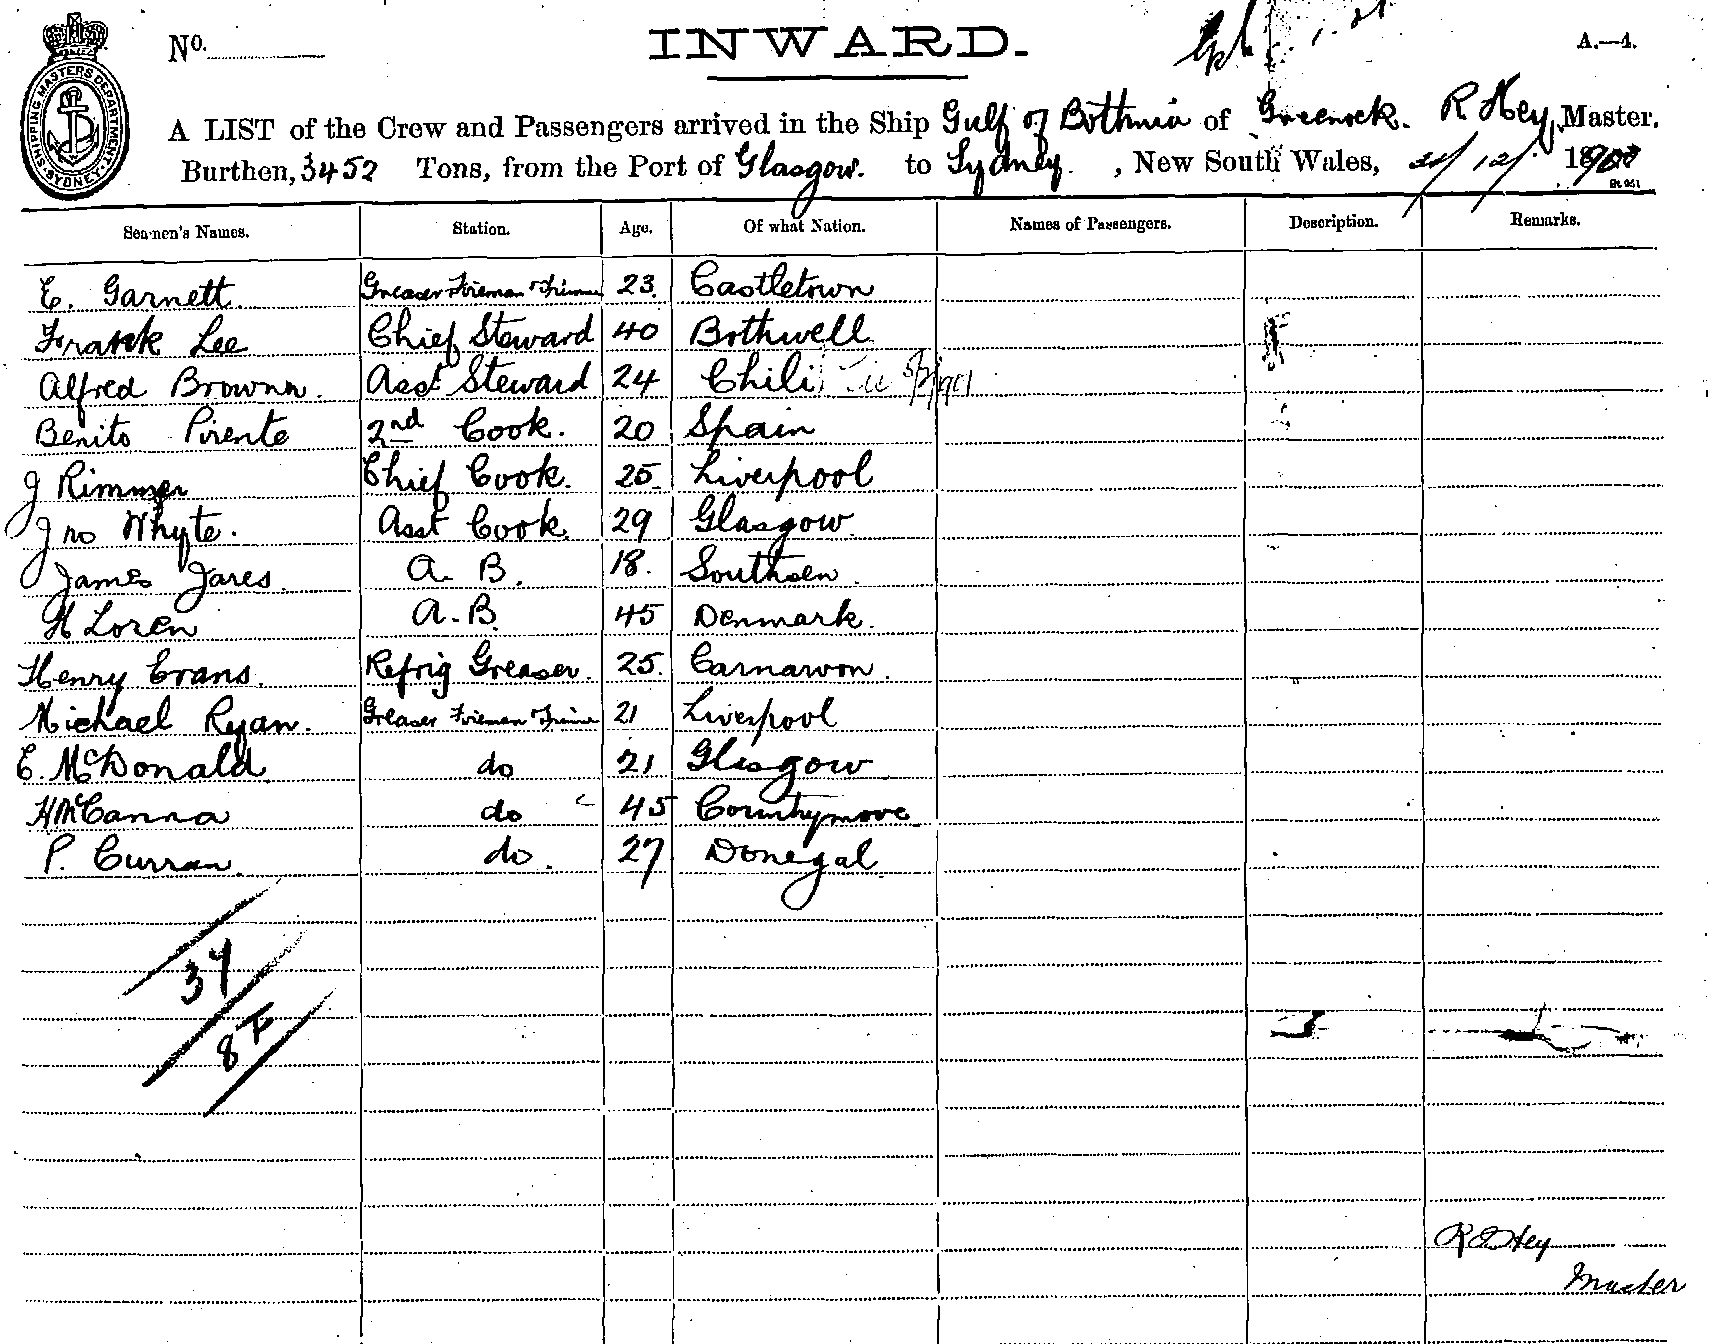 SHIPPING MASTERS DEPARTMENT SYDNEY
No. INWARD. A.—4.
A LIST of the Crew and Passengers arrived in the Ship Gulf of Bothnia of Greenock. R Hey, Master.
Burthen, 3452 Tons, from the Port of Glasgow. to Sydney. , New South Wales, /12/ 1900
Seamen's Names. Station. Age. Of what Nation. Names of Passengers. Description. Remarks.
E. Garnett. Greaser Fireman & Trimmer 23. Castletown
Frank Lee Chief Steward 40 Bothwell
Alfred Brown. Asst Steward 24 Chili 5/2/1901
Benito Pirente 2nd Cook. 20 Spain
J Rimmer Chief Cook. 25. Liverpool
Jno Whyte. Asst Cook. 29 Glasgow.
James Jares. A. B. 18. Southsen.
H Loren A.B. 45 Denmark.
Henry Evans. Refrig Greaser. 25. Carnarvon.
Michael Ryan. Greaser Fireman & Trimmer 21 Liverpool
E. McDonald do 21 Glasgow
H McCanna do 45 Countymove
P. Curran. do. 27 Donegal.
34
8 F
R Hey
Master